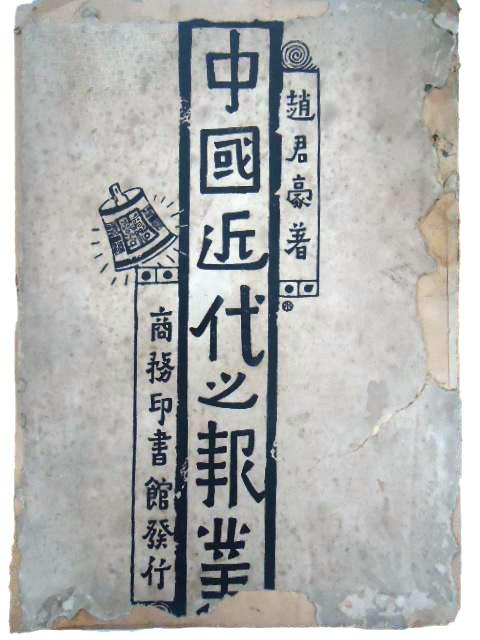 趙君豪著
中國近代之報業
商務印書館發行